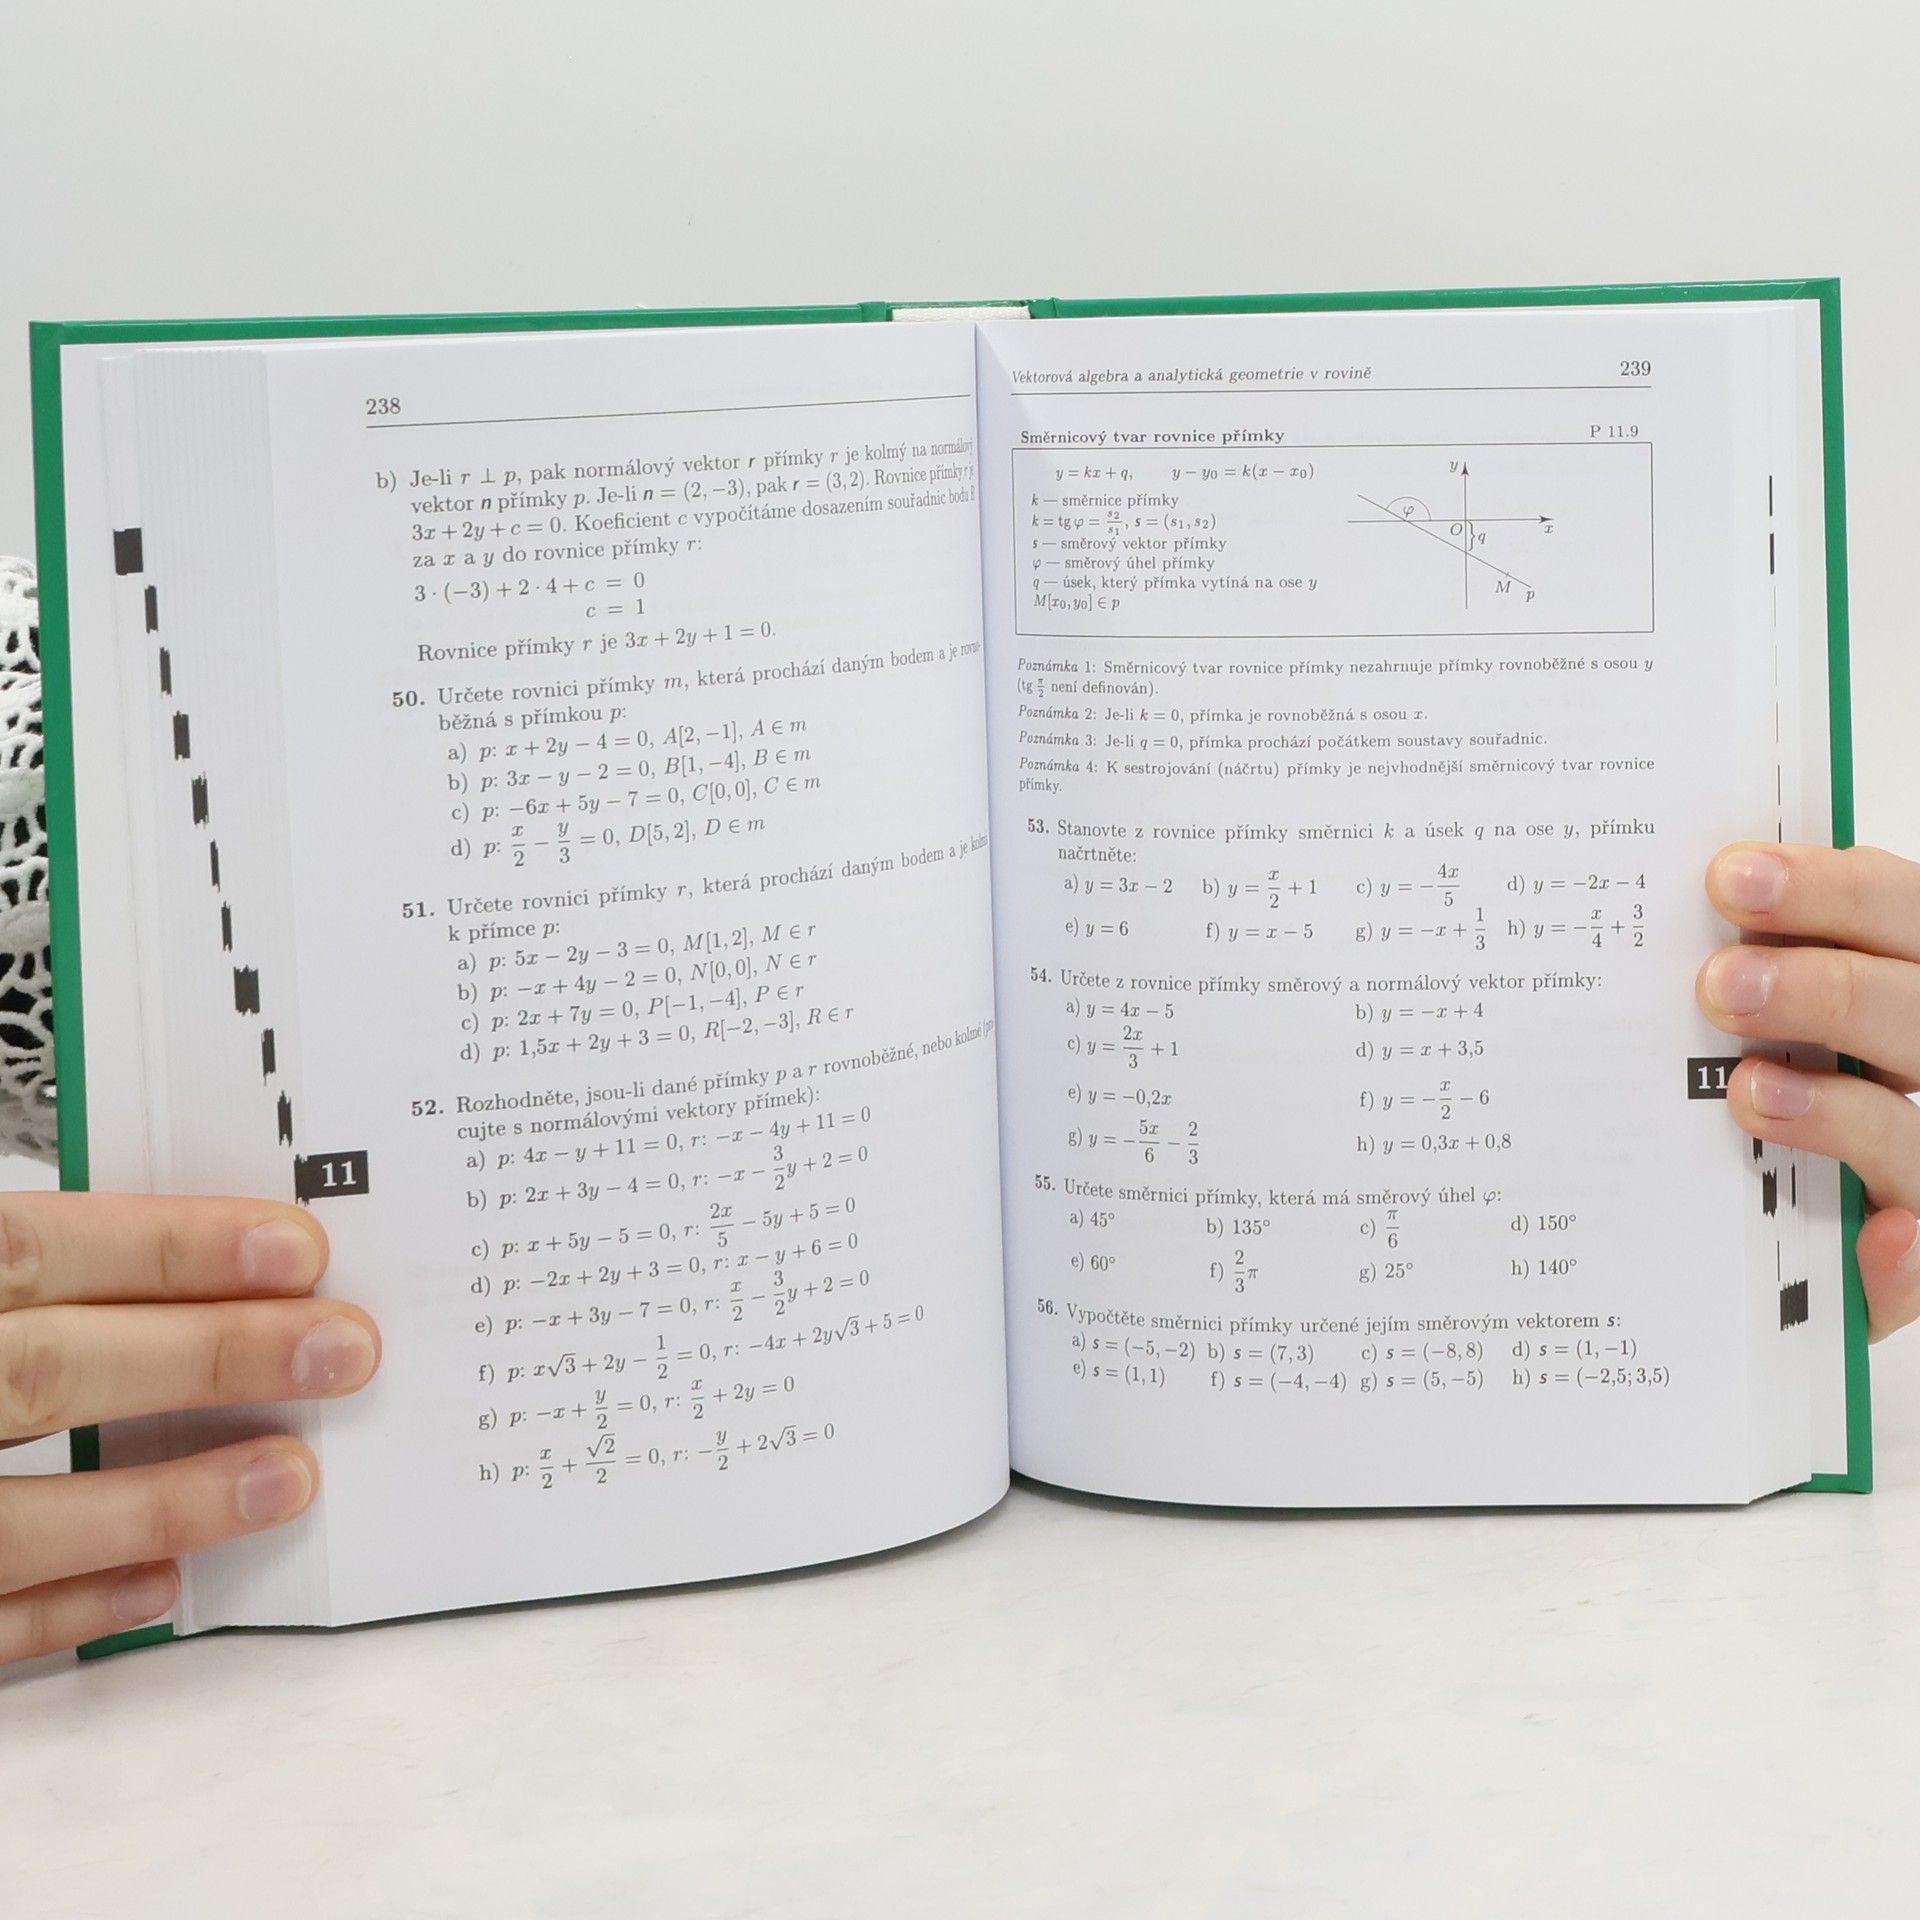 238
b) Je-li r ⊥ p, pak normálový vektor r přímky r je kolmý na normálový
vektor n přímky p. Je-li n = (2, −3), pak r = (3, 2). Rovnice přímky r je
3x + 2y + c = 0. Koeficient c vypočítáme dosazením souřadnic bodu
za x a y do rovnice přímky r:
3 · (−3) + 2 · 4 + c = 0
c = 1
Rovnice přímky r je 3x + 2y + 1 = 0.
50. Určete rovnici přímky m, která prochází daným bodem a je rovno-
běžná s přímkou p:
a) p: x + 2y − 4 = 0, A[2, −1], A ∈ m
b) p: 3x − y − 2 = 0, B[1, −4], B ∈ m
c) p: −6x + 5y − 7 = 0, C[0, 0], C ∈ m
d) p: x/2 − y/3 = 0, D[5, 2], D ∈ m
51. Určete rovnici přímky r, která prochází daným bodem a je kolmá
k přímce p:
a) p: 5x − 2y − 3 = 0, M[1, 2], M ∈ r
b) p: −x + 4y − 2 = 0, N[0, 0], N ∈ r
c) p: 2x + 7y = 0, P[−1, −4], P ∈ r
d) p: 1,5x + 2y + 3 = 0, R[−2, −3], R ∈ r
52. Rozhodněte, jsou-li dané přímky p a r rovnoběžné, nebo kolmé
cujte s normálovými vektory přímek):
a) p: 4x − y + 11 = 0, r: −x − 4y + 11 = 0
b) p: 2x + 3y − 4 = 0, r: −x − 3/2 y + 2 = 0
c) p: x + 5y − 5 = 0, r: 2x/5 − 5y + 5 = 0
d) p: −2x + 2y + 3 = 0, r: x − y + 6 = 0
e) p: −x + 3y − 7 = 0, r: x/2 − 3/2 y + 2 = 0
f) p: x√3 + 2y − 1/2 = 0, r: −4x + 2y√3 + 5 = 0
g) p: −x + y/2 = 0, r: x/2 + 2y = 0
h) p: x/2 + √2/2 = 0, r: −y/2 + 2√3 = 0
11
Vektorová algebra a analytická geometrie v rovině 239
Směrnicový tvar rovnice přímky P 11.9
y = kx + q, y − y₀ = k(x − x₀)
k — směrnice přímky
k = tg φ = s₂/s₁, s = (s₁, s₂)
s — směrový vektor přímky
φ — směrový úhel přímky
q — úsek, který přímka vytíná na ose y
M[x₀, y₀] ∈ p
y
φ
O
q
x
M
p
Poznámka 1: Směrnicový tvar rovnice přímky nezahrnuje přímky rovnoběžné s osou y
(tg π/2 není definován).
Poznámka 2: Je-li k = 0, přímka je rovnoběžná s osou x.
Poznámka 3: Je-li q = 0, přímka prochází počátkem soustavy souřadnic.
Poznámka 4: K sestrojování (náčrtu) přímky je nejvhodnější směrnicový tvar rovnice
přímky.
53. Stanovte z rovnice přímky směrnici k a úsek q na ose y, přímku
načrtněte:
a) y = 3x − 2 b) y = x/2 + 1 c) y = −4x/5 d) y = −2x − 4
e) y = 6 f) y = x − 5 g) y = −x + 1/3 h) y = −x/4 + 3/2
54. Určete z rovnice přímky směrový a normálový vektor přímky:
a) y = 4x − 5 b) y = −x + 4
c) y = 2x/3 + 1 d) y = x + 3,5
e) y = −0,2x f) y = −x/2 − 6
g) y = −5x/6 − 2/3 h) y = 0,3x + 0,8
55. Určete směrnici přímky, která má směrový úhel φ:
a) 45° b) 135° c) π/6 d) 150°
e) 60° f) 2/3 π g) 25° h) 140°
56. Vypočtěte směrnici přímky určené jejím směrovým vektorem s:
a) s = (−5, −2) b) s = (7, 3) c) s = (−8, 8) d) s = (1, −1)
e) s = (1, 1) f) s = (−4, −4) g) s = (5, −5) h) s = (−2,5; 3,5)
11